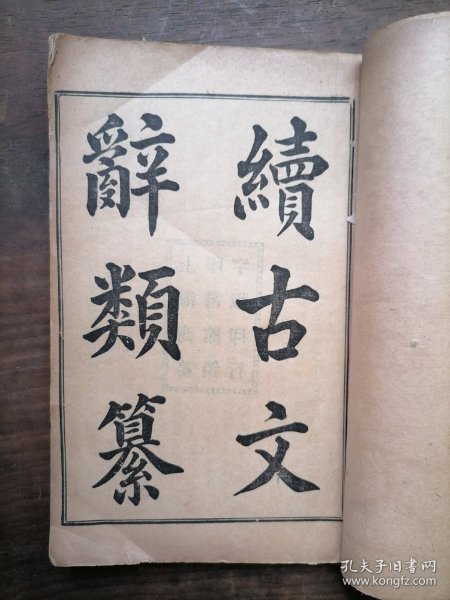 續古文
辭類纂
孔夫子旧书网
www.kongfz.com